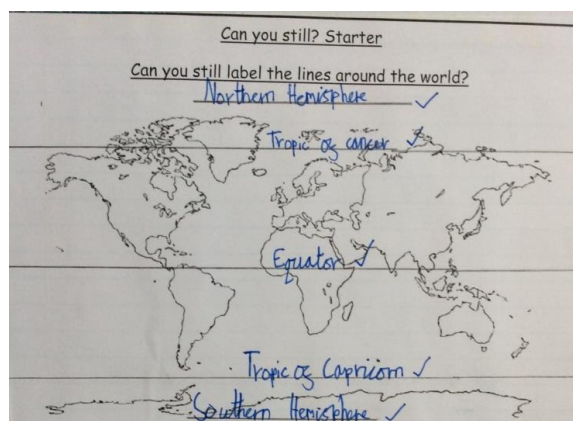 Can you still? Starter
Can you still label the lines around the world?
Northern Hemisphere
Tropic of cancer
Equator
Tropic of Capricorn
Southern Hemisphere